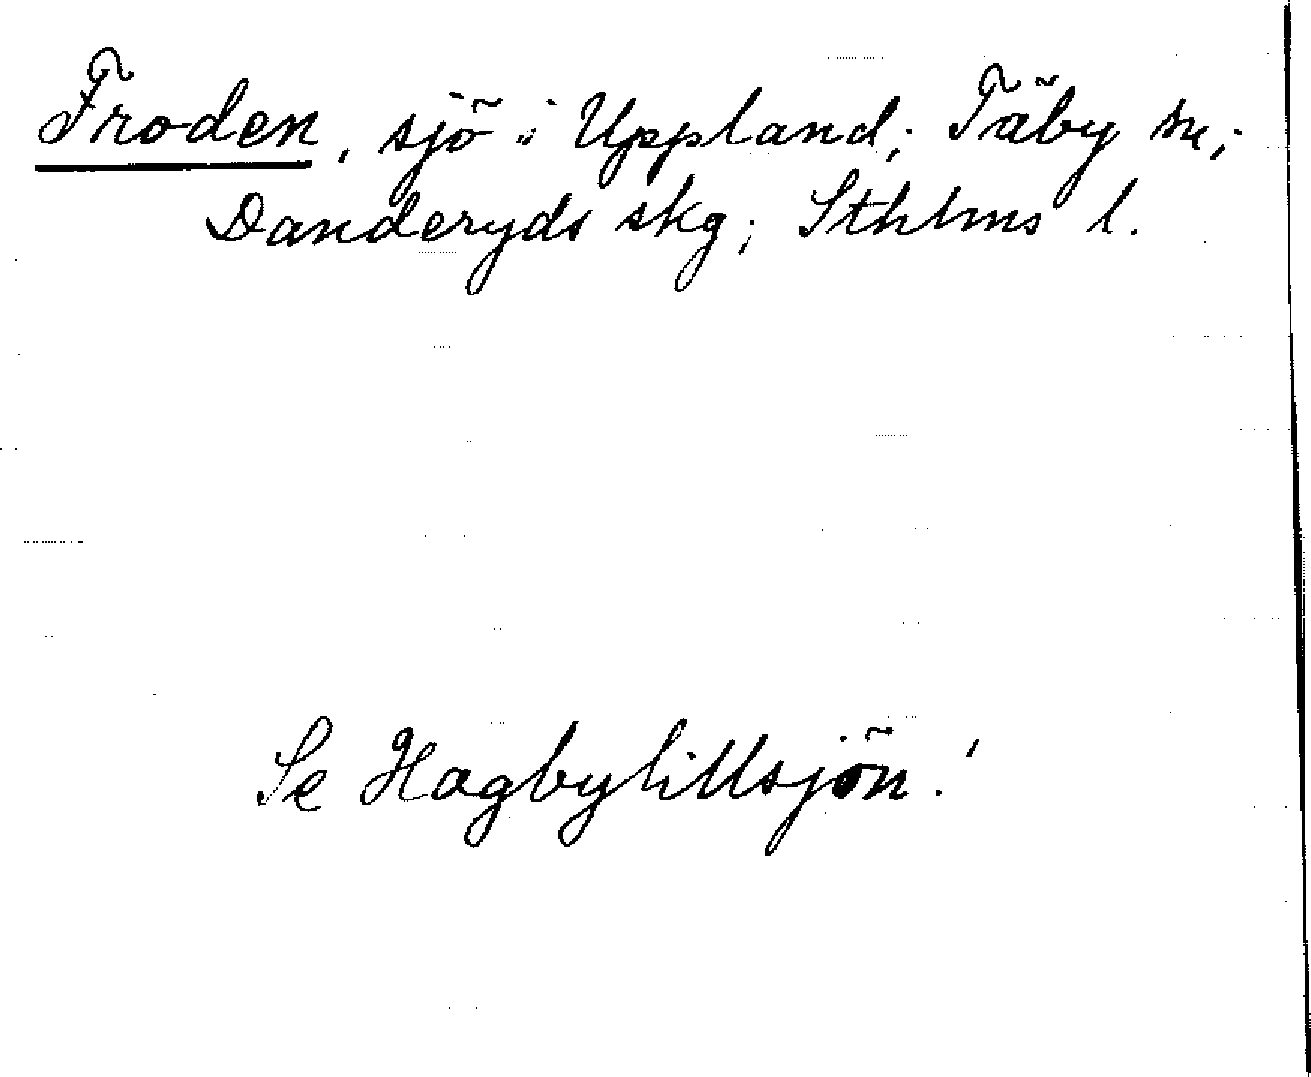 Froden, sjö i Uppland; Täby sn;
Danderyds skg; Sthlms l.
Se Hagbylillsjön!